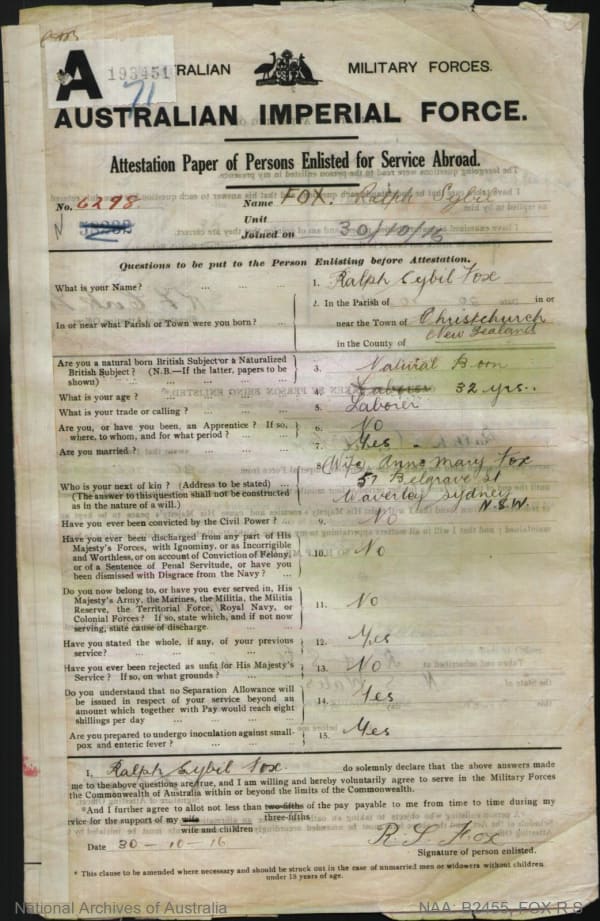 A
193451
71
AUSTRALIAN MILITARY FORCES.
AUSTRALIAN IMPERIAL FORCE.
Attestation Paper of Persons Enlisted for Service Abroad.
No. 6298
Name FOX. Ralph Sybil
Unit
Joined on 30/10/16
Questions to be put to the Person Enlisting before Attestation.
What is your Name? ... ... ... 1. Ralph Sybil Fox
In or near what Parish or Town were you born? ... 2. In the Parish of in or
near the Town of Christchurch
in the County of New Zealand
Are you a natural born British Subject or a Naturalized
British Subject? (N.B.—If the latter, papers to be
shown) 3. Natural Born
What is your age? ... ... ... 4. Laborer 32 yrs..
What is your trade or calling? ... ... 5. Laborer
Are you, or have you been, an Apprentice? If so,
where, to whom, and for what period? ... ... 6. No
Are you married? ... ... ... 7. Yes
Who is your next of kin? (Address to be stated) ...
(The answer to this question shall not be constructed
as in the nature of a will.)
8. (Wife) Annie Mary Fox
57 Belgrave St
Waverley Sydney
N.S.W.
Have you ever been convicted by the Civil Power? ... 9. No
Have you ever been discharged from any part of His
Majesty's Forces, with Ignominy, or as Incorrigible
and Worthless, or on account of Conviction of Felony,
or of a Sentence of Penal Servitude, or have you
been dismissed with Disgrace from the Navy? ... 10. No
Do you now belong to, or have you ever served in, His
Majesty's Army, the Marines, the Militia, the Militia
Reserve, the Territorial Force, Royal Navy, or
Colonial Forces? If so, state which, and if not now
serving, state cause of discharge. 11. No
Have you stated the whole, if any, of your previous
service? ... ... ... 12. Yes
Have you ever been rejected as unfit for His Majesty's
Service? If so, on what grounds? ... 13. No
Do you understand that no Separation Allowance will
be issued in respect of your service beyond an
amount which together with Pay would reach eight
shillings per day ... ... ... 14. Yes
Are you prepared to undergo inoculation against small-
pox and enteric fever? ... ... 15. Yes
I, Ralph Sybil Fox. do solemnly declare that the above answers made
me to the above questions are true, and I am willing and hereby voluntarily agree to serve in the Military Forces
the Commonwealth of Australia within or beyond the limits of the Commonwealth.
*And I further agree to allot not less than two-fifths of the pay payable to me from time to time during my
three-fifths
rvice for the support of my wife
wife and children
Date 30-10-16 R. S. Fox
Signature of person enlisted.
* This clause to be amended where necessary and should be struck out in the case of unmarried men or widowers without children
under 18 years of age.
National Archives of Australia NAA: B2455, FOX R S